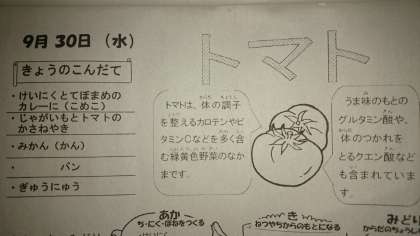 9月30日（水）
トマト
きょうのこんだて
・けいにくとてぼまめの
カレーに（こめこ）
・じゃがいもとトマトの
かさねやき
・みかん（かん）
・　　　パン
・ぎゅうにゅう
トマトは、体の調子
を整えるカロテンやビ
タミンCなどを多く含
む緑黄色野菜のなか
まです。
うま味のもとの
グルタミン酸や、
体のつかれを
とるクエン酸など
も含まれていま
す。
あか
ち・にく・ほねをつくる
き
ねつやちからのもとになる
みどり
からだのちょう